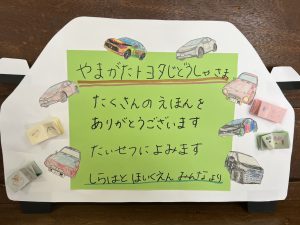 やまがたトヨタじどうしゃさま
たくさんのえほんを
ありがとうございます
たいせつによみます
しらはと ほいくえん みんなより